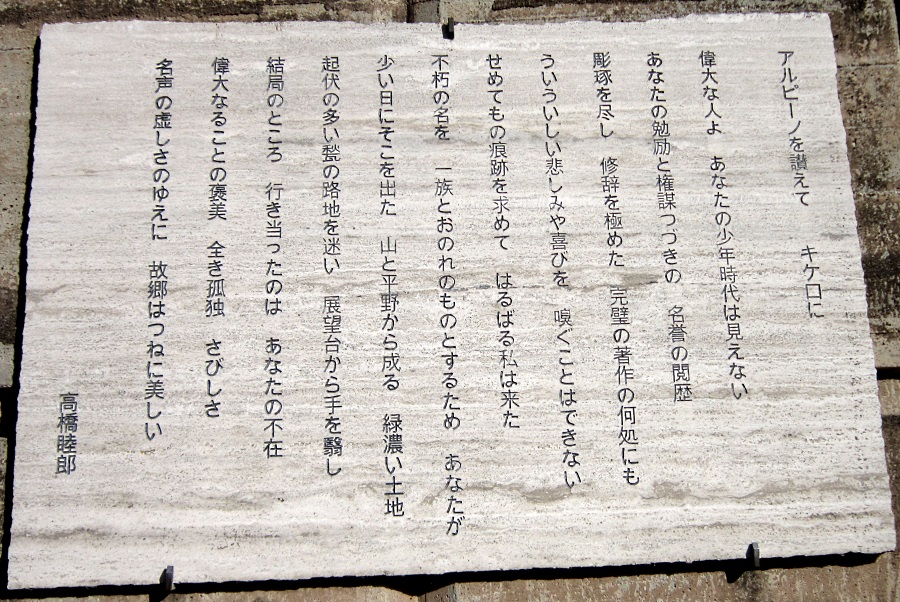 アルピーノを讃えて　　キケロに
偉大な人よ　あなたの少年時代は見えない
あなたの勉励と権謀つづきの　名誉の閲歴
彫琢を尽し　修辞を極めた　完璧の著作の何処にも
ういういしい悲しみや喜びを　嗅ぐことはできない
せめてもの痕跡を求めて　はるばる私は来た
不朽の名を　一族とおのれのものとするため　あなたが
少い日にそこを出た　山と平野から成る　緑濃い土地
起伏の多い甃の路地を迷い　展望台から手を翳し
結局のところ　行き当ったのは　あなたの不在
偉大なることの褒美　全き孤独　さびしさ
名声の虚しさのゆえに　故郷はつねに美しい
高橋睦郎